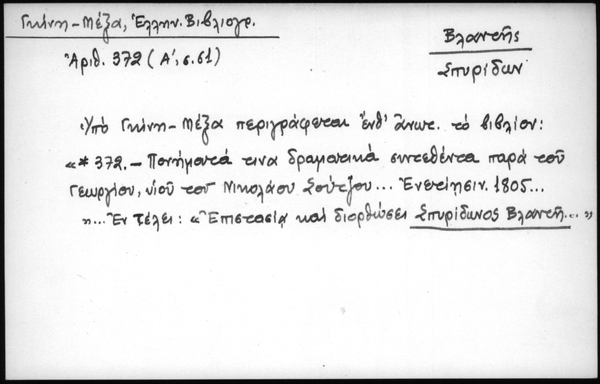 Γκίνη-Μέξα, Ἑλλην. Βιβλιογρ.
Ἀριθ. 372 (Α', σ. 61)
Βλαντῆς
Σπυρίδων
Ὑπὸ Γκίνη-Μέξα περιγράφεται ἔνθ' ἄνωτ. τὸ βιβλίον:
«* 372.- Ποιήματά τινα δραματικὰ συντεθέντα παρὰ τοῦ
Γεωργίου, υἱοῦ τοῦ Νικολάου Σούτζου... Ἐνετίησιν. 1805...
»... Ἐν τέλει: «Ἐπιστασίᾳ καὶ διορθώσει Σπυρίδωνος Βλαντῆ...»